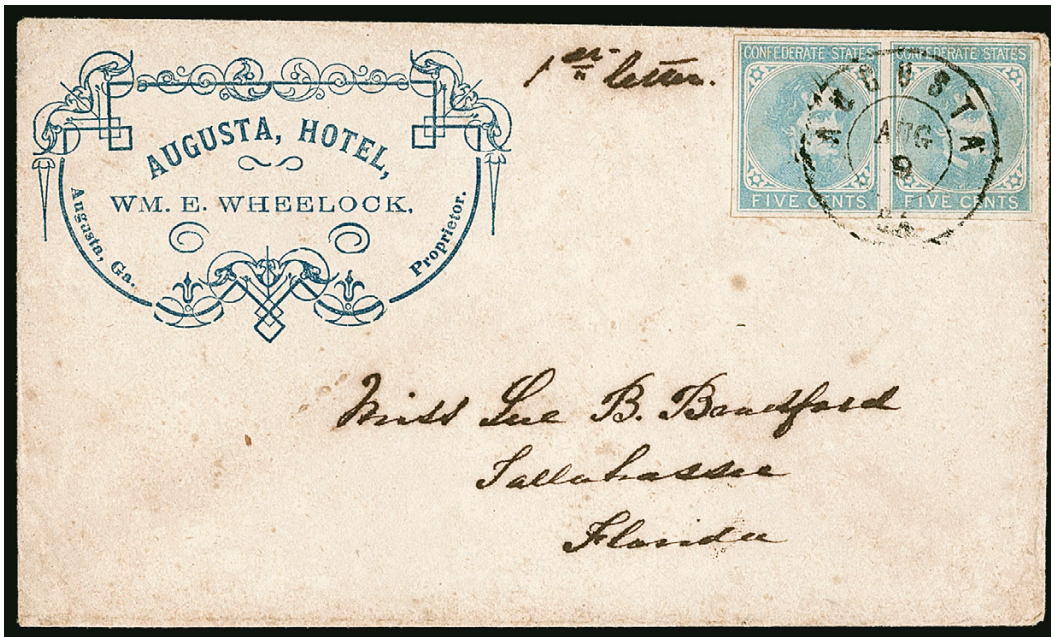 AUGUSTA, HOTEL,
WM. E. WHEELOCK,
Augusta, Ga.
Proprietor.
letter.
CONFEDERATE STATES
FIVE CENTS
CONFEDERATE STATES
FIVE CENTS
AUGUSTA
AUG
9
GA
Miss Sue B. Bradford
Tallahassee
Florida